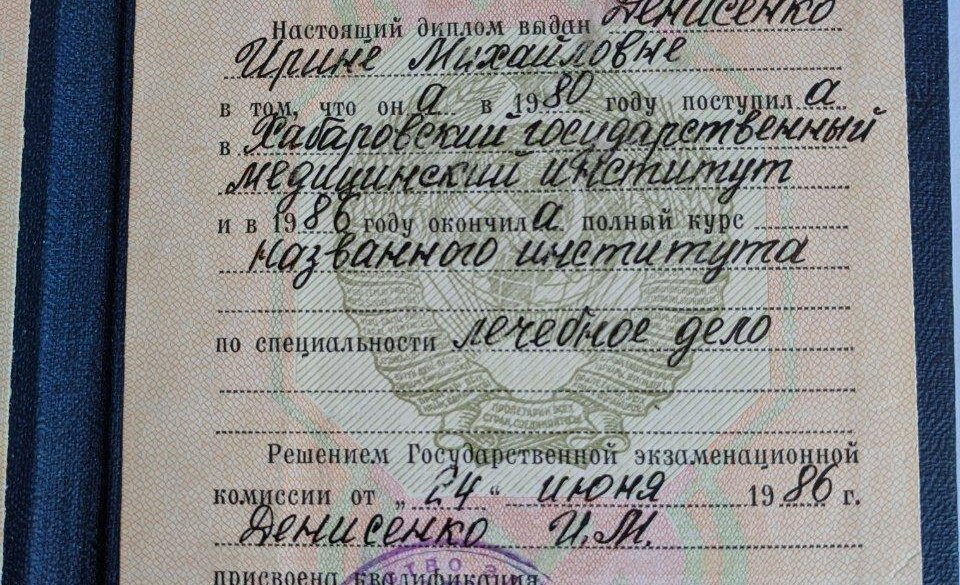 Настоящий диплом выдан Денисенко
Ирине Михайловне
в том, что он а в 1980 году поступил а
в Хабаровский государственный
медицинский институт
и в 1986 году окончил а полный курс
названного института
по специальности лечебное дело
ПРОЛЕТАРИИ ВСЕХ
СТРАН, СОЕДИНЯЙТЕСЬ
Решением Государственной экзаменационной
комиссии от „24“ июня 1986 г.
Денисенко И.М.
присвоена квалификация